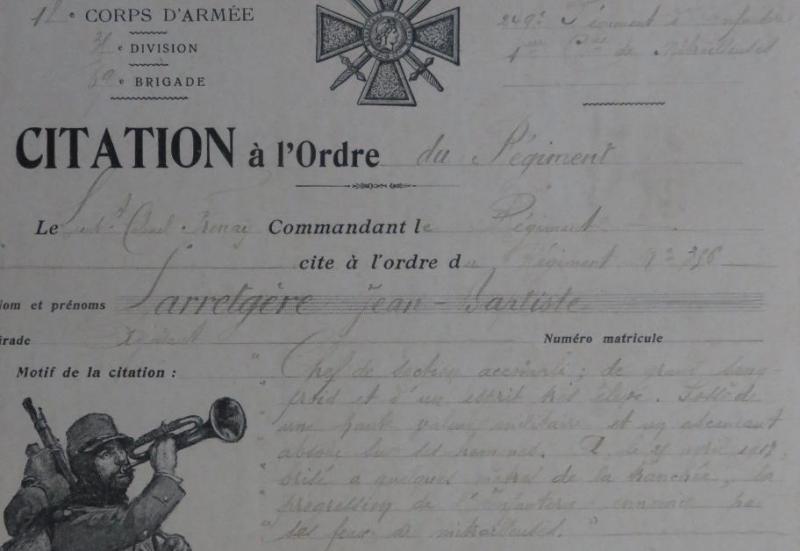 18e CORPS D'ARMÉE
e DIVISION
e BRIGADE
249e Régiment d'Infanterie
de Mitrailleuses
CITATION à l'Ordre du Régiment
Le Lieut Commandant le Régiment
cite à l'ordre du Régiment No
Nom et prénoms Larretgère Jean-Baptiste
Grade Numéro matricule
Motif de la citation : " Chef de section accompli ; de grand sang
" froid et d'un esprit très élevé. Possède
" une haute valeur militaire et un ascendant
" absolu sur ses hommes. A, le avril 1917,
" à quelques mètres de la tranchée, la
" progression de l'Infanterie ennemie par
" ses feux de mitrailleuses. "